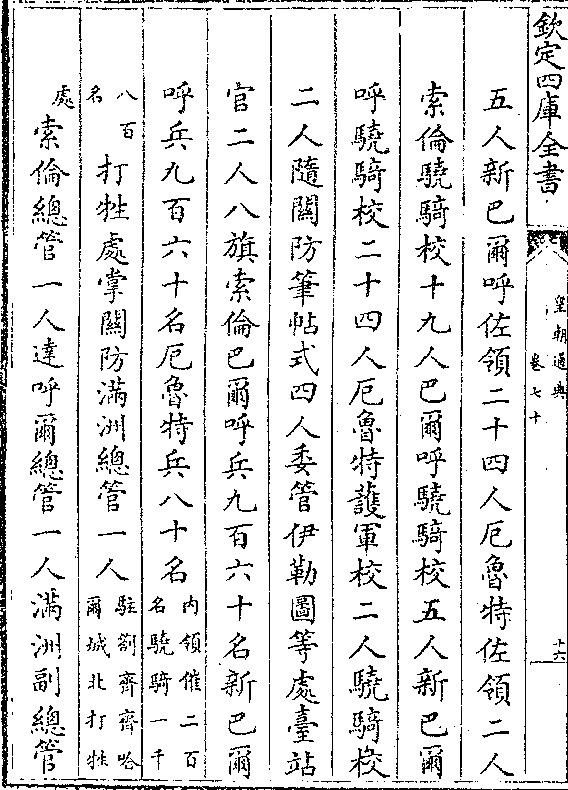 欽定四庫全書
皇朝通典
卷七十
十六
五人新巴爾呼佐領二十四人厄魯特佐領二人
索倫驍騎校十九人巴爾呼驍騎校五人新巴爾
呼驍騎校二十四人厄魯特護軍校二人驍騎校
二人隨關防筆帖式四人委管伊勒圖等處臺站
官二人八旗索倫巴爾呼兵九百六十名新巴爾
呼兵九百六十名厄魯特兵八十名
內領催二百
名驍騎一千
八百
名
打牲處掌關防滿洲總管一人
駐劄齊齊哈
爾城北打牲
處
索倫總管一人達呼爾總管一人滿洲副總管